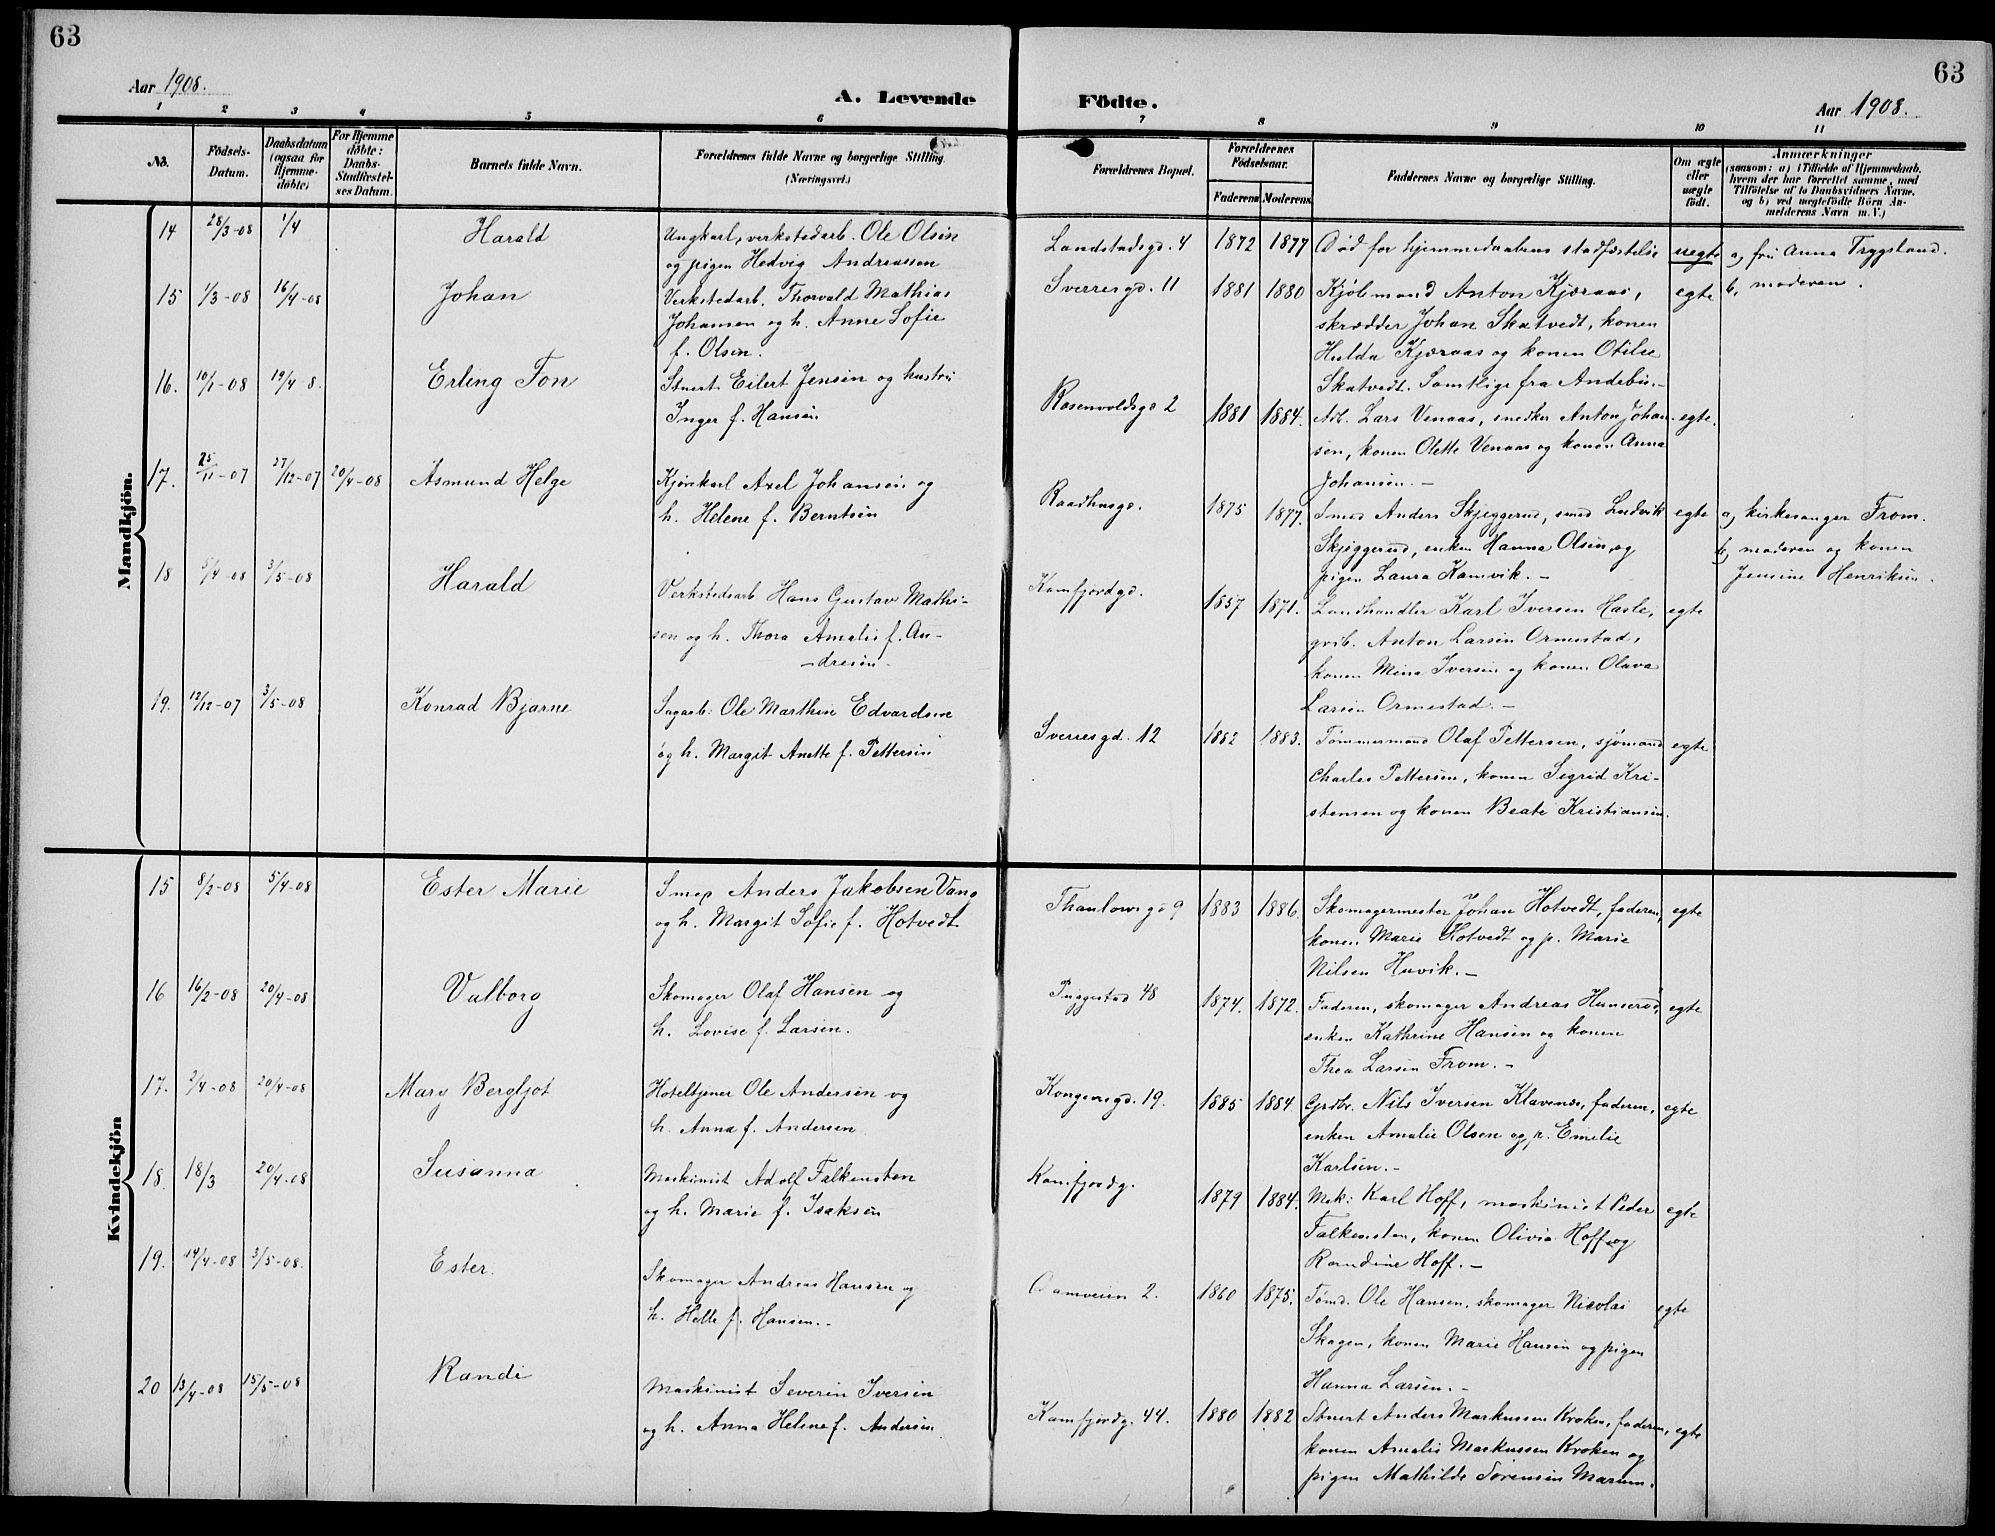 63
63
Aar 1908.
A. Levende
Födte.
Aar 1908.
1 2 3 4 5 6 7 8 9 10 11
No.
Födsels-Datum.
Daabsdatum (ogsaa for Hjemme-döbte)
For Hjemme döbte: Daabs-Stadfæstel-ses Datum.
Barnets fulde Navn.
Forældrenes fulde Navne og borgerlige Stilling. (Næringsvei.)
Forældrenes Bopæl.
Forældrenes Födselsaar.
Faderens
Moderens
Faddernes Navne og borgerlige Stilling.
Om ægte eller uægte födt.
Anmærkninger
(saasom: a) i Tilfælde af Hjemmedaab, hvem der har forrettet samme, med Tilföielse af to Daabsvidners Navne, og b) ved uægtefödte Börn An-melderens Navn m. V.)
Mandkjön.
14 28/3-08 1/4 Harald
Ungkarl, verkstedarb. Ole Olsen
og pigen Hedvig Andreassen
Landstadsgd. 4 1872 1877 Död for hjemmedaabens stadfæstelse uegte a, fru Anna Trygsland.
b, moderen.
15 1/3-08 16/4-08 Johan
Verkstedarb. Thorvald Mathias
Johansen og h. Anne Sofie
f. Olsen.
Sverresgd. 11 1881 1880 Kjöbmand Anton Kjæraas,
skrædder Johan Skatvedt, konen
Hulda Kjæraas og konen Otilie
Skatvedt. Samtlige fra Andebu.- egte
16. 10/1-08 19/4 8. Erling Fon
Stuert Eilert Jensen og hustru
Inger f. Hansen
Rosenvoldsgd 2 1881 1884. Arb. Lars Venaas, snedker Anton Johan-
sen, konen Olette Venaas og konen Anna
Johansen.- egte.
17. 25/11-07 27/12-07 20/4-08 Asmund Helge
Kjörekarl Axel Johansen og
h. Helene f. Berntsen
Raadhusgd. 1875 1877. Smed Anders Skjeggerud, smed Ludvik
Skjeggerud, enken Hanna Olsen, og
pigen Laura Kamvik.- egte
a, kirkesanger From.
b, moderen og konen
Jensine Henriksen.
18 5/4-08 3/5-08 Harald
Verkstedsarb Hans Gustav Mathi-
sen og h. Thora Amalie f. An-
-dresen-
Kamfjordgd. 1857 1871. Landhandler Karl Iversen Hasle,
grdb. Anton Larsen Ormestad,
konen Mina Iversen og konen Olava
Larsen Ormestad.- egte
19. 12/12-07 3/5-08 Konrad Bjarne
Sagarb: Ole Marthin Edvardsen
og h. Margit Anette f. Pettersen
Sverresgd. 12 1882 1883. Tömmermand Olaf Pettersen, sjömand
Charles Pettersen, konen Sigrid Kri-
stensen og konen Beate Kristiansen. egte
Kvindekjön
15 8/2-08 5/4-08 Ester Marie
Smed Anders Jakobsen Vang
og h. Margit Sofie f. Hotvedt
Thaulowsgd 9 1883 1886. Skomagermester Johan Hotvedt, faderen,
konen Marie Hotvedt og p. Marie
Nilsen Huvik.- egte
16 16/2-08 20/4-08 Valborg
Skomager Olaf Hansen og
h. Lovise f. Larsen.
Puggestad 48 1874. 1872. Faderen, skomager Andreas Hunserød,
enken Kathrine Hansen og konen
Thea Larsen From.- egte
17. 2/4-08 20/4-08 Mary Bergljot
Hoteltjener Ole Andersen og
h. Anna f. Andersen
Kongensgd. 19. 1885 1884. Grdbr. Nils Iversen Klavenæs, faderen,
enken Amalie Olsen og p. Emelie
Karlsen.- egte
18. 18/3 20/4-08 Susanna
Maskinist Adolf Falkensten
og h. Marie f. Isaksen
Kamfjordg. 1879 1884. Mek: Karl Hoff, maskinist Peder
Falkensten, konen Olivia Hoff og
Randine Hoff.- egte
19. 14/4-08 3/5-08. Ester.
Skomager Andreas Hansen og
h. Helle f. Hansen.-
Damveien 2. 1860 1875. Tömd. Ole Hansen, skomager Nicolai
Skagen, konen Marie Hansen og pigen
Hanna Larsen.- egte
20 13/4-08 15/5-08 Randi
Maskinist Severin Iversen
og h. Anna Helene f. Andersen
Kamfjordg. 44. 1880 1882 Stuert Anders Markussen Kroken, faderen,
konen Amalie Markussen Kroken og
pigen Mathilde Sörensen Marum. egte